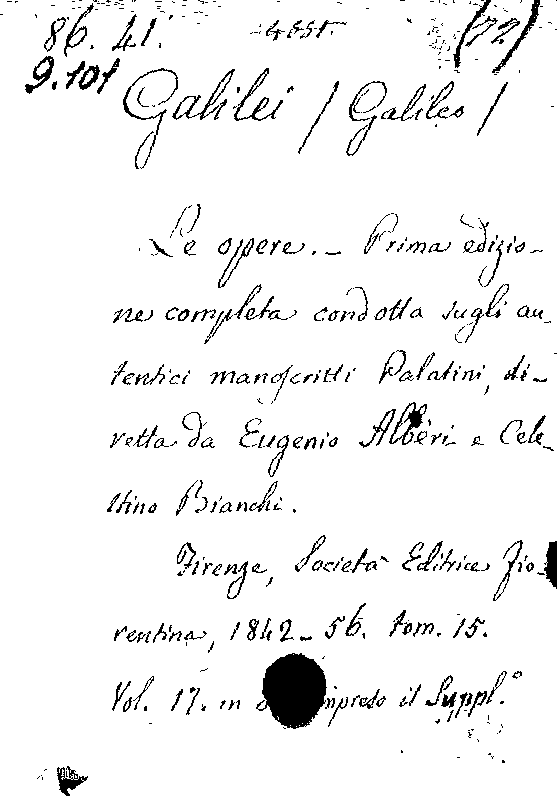 86. 41. (72)
9.101
Galilei / Galileo /
Le opere. - Prima edizio-
ne completa condotta sugli au-
tentici manoscritti Palatini, di-
retta da Eugenio Albèri e Cele-
stino Bianchi.
Firenze, Società Editrice Fio-
rentina, 1842-56. tom. 15.
Vol. 17. in il Suppl.°